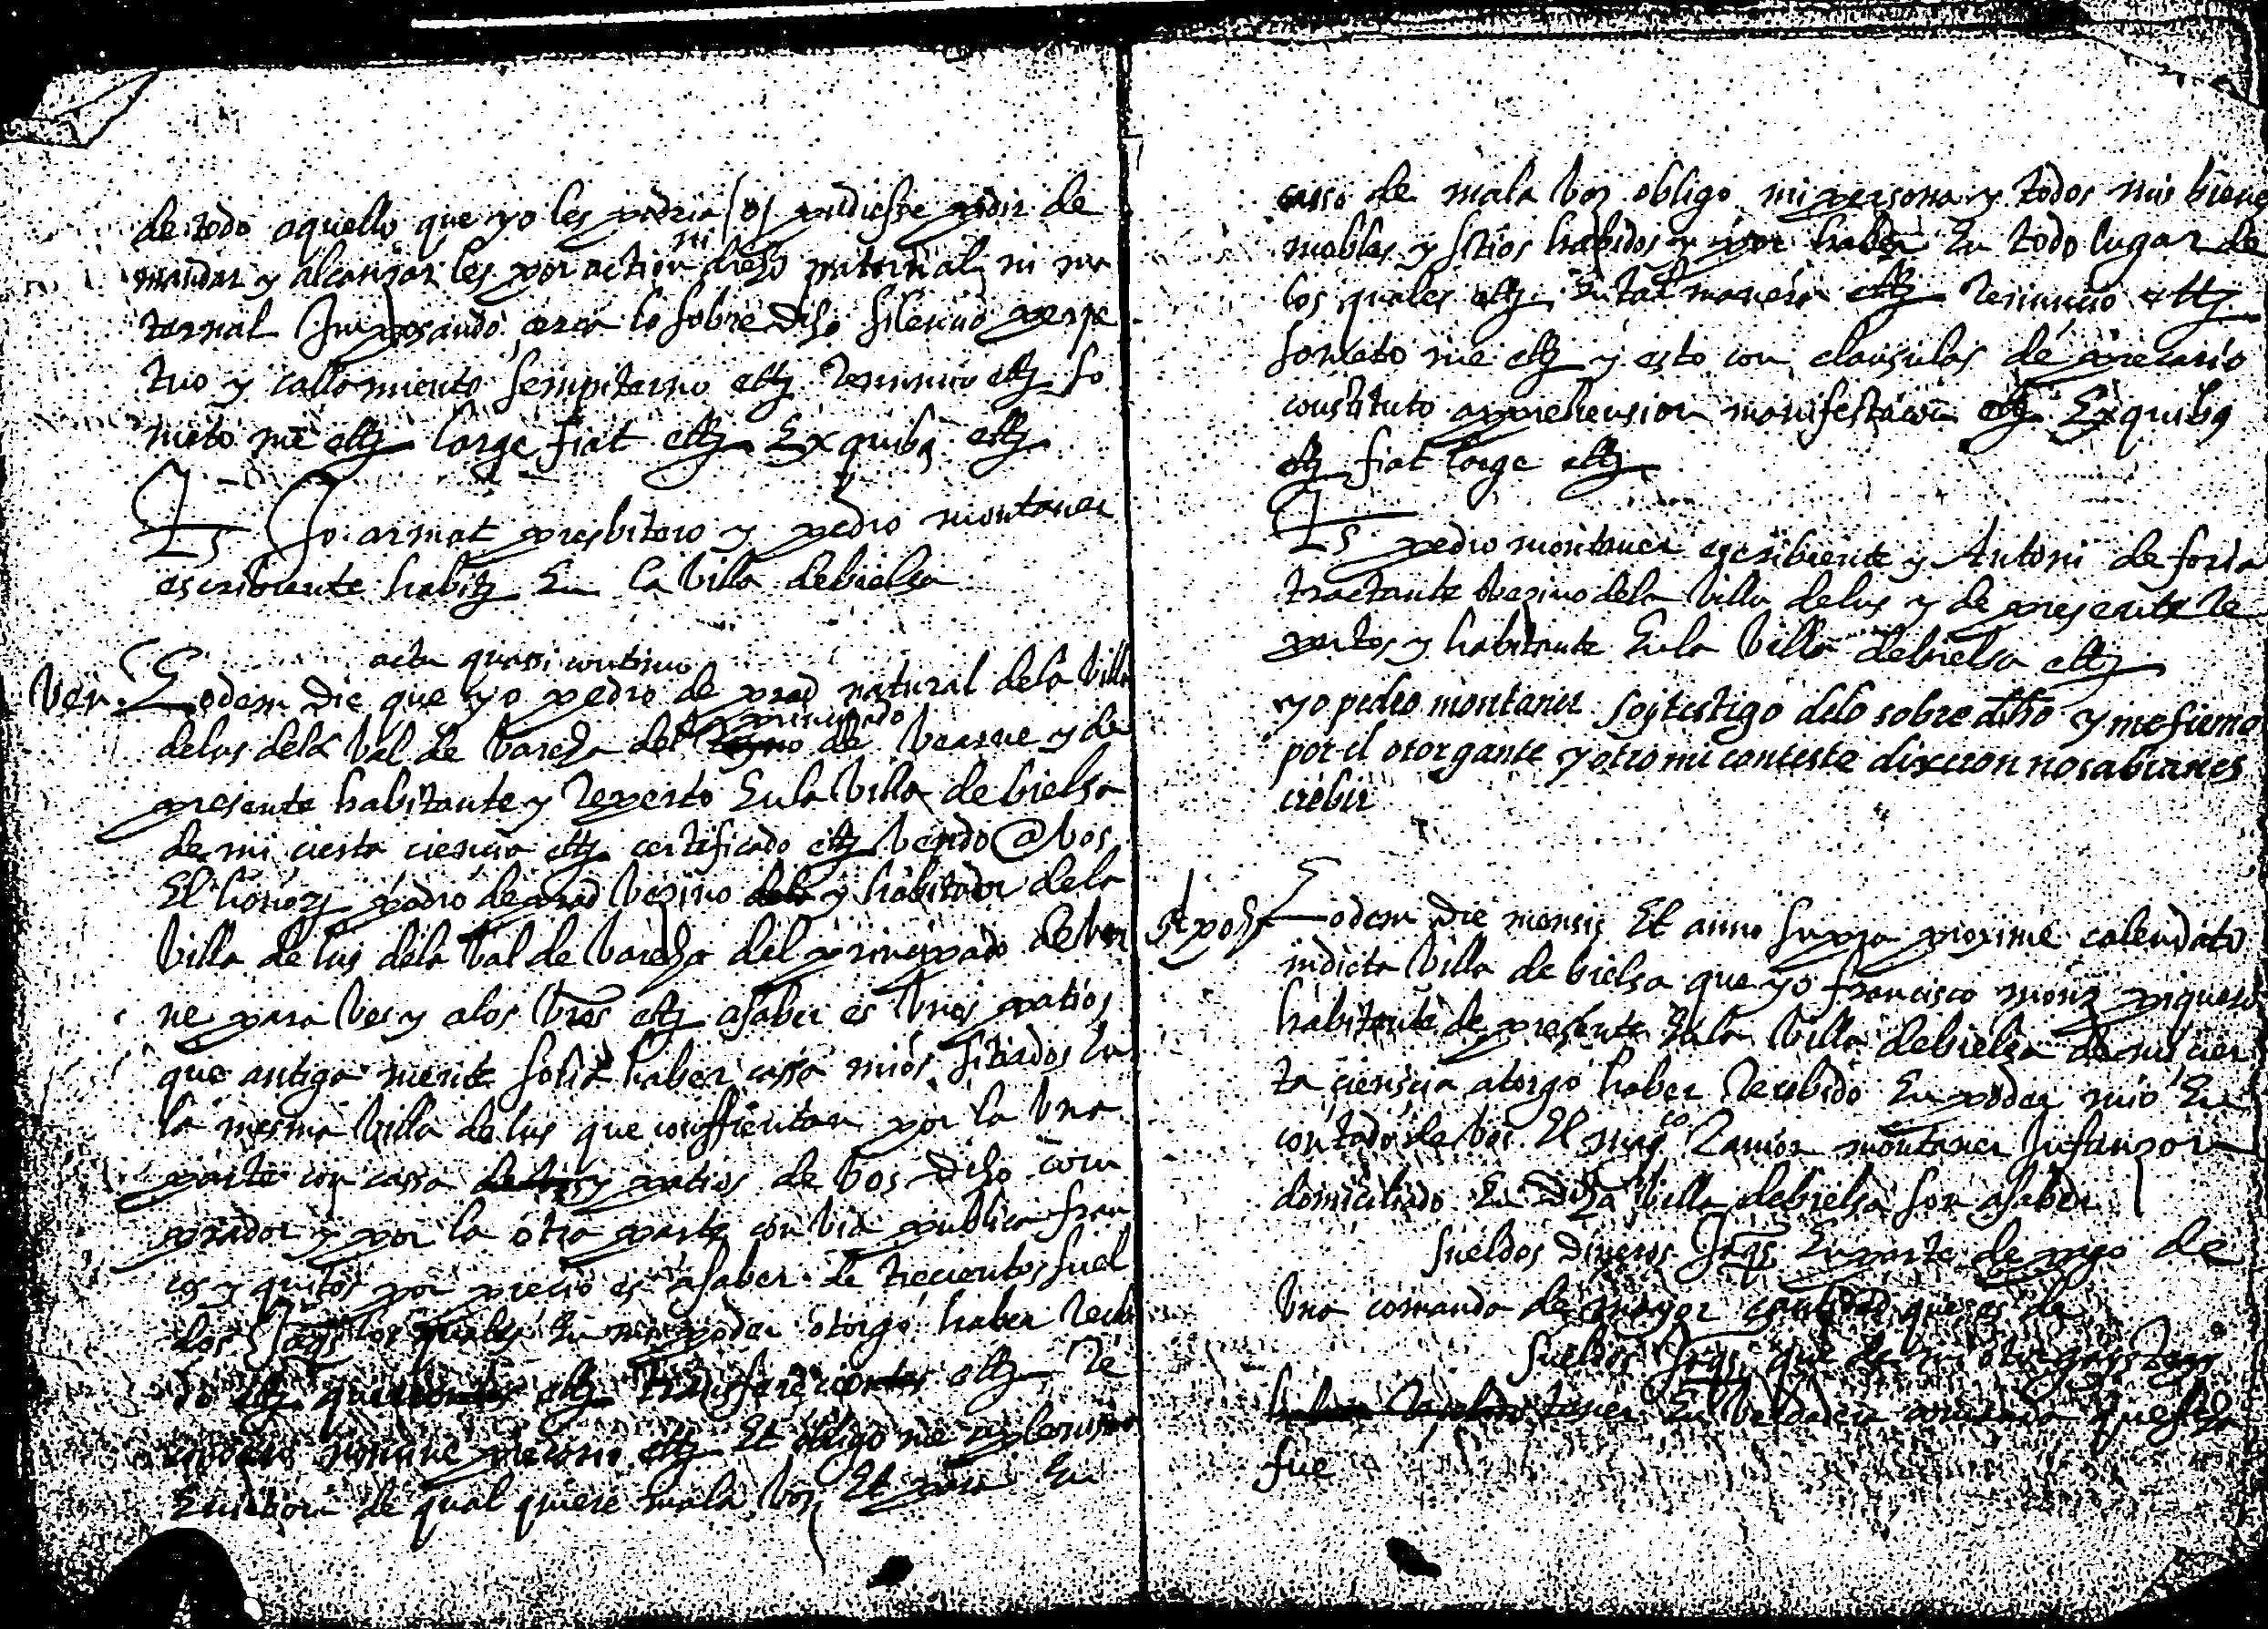 de todo aquello que yo les podria [o] pudiesse pedir de
mandar y alcançar les por action ni drecho patternal ni ma
ternal Imposando cerca lo sobre dicho silencio perpe
tuo y callamiento sempiterno ettz renuncio ettz so
meto me ettz large fiat ettz Ex quibus ettz
Ts Jo. armat presbitero y pedro montaner
escribiente habitz En la Villa de bielsa
actu quasi continuo
Ven. Eodem Die que yo pedro de prad natural de la Villa
de lus de la Val de Varecha del reyno principado de Bearne y de
presente habitante y reperto En la Villa de bielsa
de mi cierta ciencia ettz certificado ettz Vendo @ Vos
El honorz pedro de prad Vezino dela y habitador de la
Villa de lus de la Val de Varecha del principado de Ver
ne para Vos y a los Vros ettz asaber es Unos patios
que antiga mente solia haber cassa mios sitiados En
la mesma Villa de lus que conffrentan por la Una
parte con cassa de Vos y patios de Vos Dicho com
prador y por la otra parte con Via publica fran
cos y quitos por precio es asaber de trecientos suel
dos Jaqs los quales En mi poder otorgo haber reci
do ettz ettz transferecientes ettz Re
nomine precario ettz Et obligo me
de qual quiere mala Voz Et para En
casso de mala Voz obligo mi persona y todos mis bienes
mobles y sitios habidos y por haber En todo lugar de
los quales ettz En tal manera ettz renuncio ettz
someto me ettz y esto con clausulas de precario
constituto apprehension manifestacion ettz Ex quibus
ettz fiat large ettz
Ts pedro montaner escribiente y Antoni de foria
tractante Vezino de la Villa de lus y de presente re
pertos y habitante En la Villa de bielsa ettz
yo pedro montaner soy testigo delo sobre ditho y me firmo
por el otorgante y otro mi conteste dixeron no sabian es
crebir
Eodem Die mensis Et anno supra proxime calendato
in dicta Villa de bielsa que yo francisco piquero
habitante de presente En la Villa de bielsa de mi cier
ta ciencia atorgo haber recebido En poder mio En
contado de Vos El magco Ramon montaner Infançon
domiciliado En Dicha Villa de bielsa son asaber
sueldos Dineros Jaqs En parte de pago de
Una comanda de mayor cantidad que es de
sueldos Jaqs que de mi otorgastes
haber tener En Verdadera comanda que fecha
fue